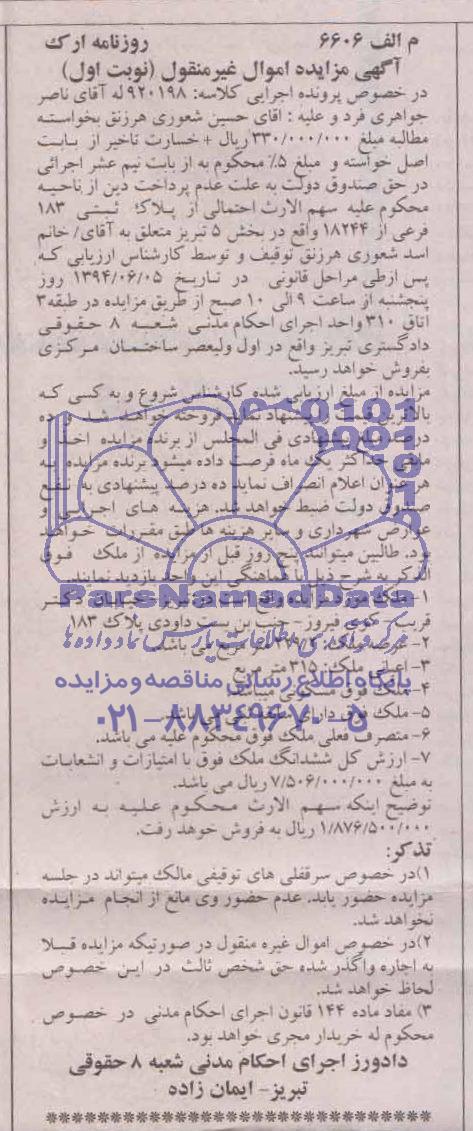 م الف ۶۶۰۶ روزنامه ارک
آگهی مزایده اموال غیرمنقول (نوبت اول)
در خصوص پرونده اجرایی کلاسه: ۹۲۰۱۹۸ له آقای ناصر
جواهری فرد و علیه : اقای حسین شعوری هرزنق بخواسته
مطالبه مبلغ ۳۳۰/۰۰۰/۰۰۰ ریال + خسارت تاخیر از بابت
اصل خواسته و مبلغ ۵٪ محکوم به از بابت نیم عشر اجرائی
در حق صندوق دولت به علت عدم پرداخت دین از ناحیه
محکوم علیه سهم الارث احتمالی از پلاک ثبتی ۱۸۳
فرعی از ۱۸۲۴۴ واقع در بخش ۵ تبریز متعلق به آقای/ خانم
اسد شعوری هرزنق توقیف و توسط کارشناس ارزیابی که
پس ازطی مراحل قانونی در تاریخ ۱۳۹۴/۰۶/۰۵ روز
پنجشنبه از ساعت ۹ الی ۱۰ صبح از طریق مزایده در طبقه ۳
اتاق ۳۱۰ واحد اجرای احکام مدنی شعبه ۸ حقوقی
دادگستری تبریز واقع در اول ولیعصر ساختمان مرکزی
بفروش خواهد رسید.
مزایده از مبلغ ارزیابی شده کارشناس شروع و به کسی که
بالاترین قیمت را پیشنهاد نماید فروخته خواهد شد و ده
درصد مبلغ پیشنهادی فی المجلس از برنده مزایده اخذ و
مابقی حداکثر یک ماه فرصت داده میشود برنده مزایده به
هر عنوان اعلام انصراف نماید ده درصد پیشنهادی به نفع
صندوق دولت ضبط خواهد شد. هزینه های اجرایی و
عوارض شهرداری و سایر هزینه ها طبق مقررات خواهد
بود. طالبین میتوانند پنج روز قبل از مزایده از ملک فوق
الذکر به شرح ذیل با هماهنگی این واحد بازدید نمایند.
ParsNamadData
۱- ملک مورد مزایده واقع است در تبریز خیابان دکتر
قریب - کوی فیروز - جنب بن بست داودی پلاک ۱۸۳
مرکز فرآوری اطلاعات پارس نماد داده ها
۲- عرصه ملک: متر مربع می باشد.
۳- اعیانی ملک: ۳۱۵ متر مربع
پایگاه اطلاع رسانی مناقصه و مزایده
۴- ملک فوق مسکونی میباشد
۵- ملک فوق دارای می باشد.
۰۲۱-۸۸۳۴۹۶۷۰-۵
۶- متصرف فعلی ملک فوق محکوم علیه می باشد.
۷- ارزش کل ششدانگ ملک فوق با امتیازات و انشعابات
به مبلغ ۷/۵۰۶/۰۰۰/۰۰۰ ریال می باشد.
توضیح اینکه سهم الارث محکوم علیه به ارزش
۱/۸۷۶/۵۰۰/۰۰۰ ریال به فروش خوهد رفت.
تذکر:
۱)در خصوص سرقفلی های توقیفی مالک میتواند در جلسه
مزایده حضور یابد. عدم حضور وی مانع از انجام مزایده
نخواهد شد.
۲)در خصوص اموال غیره منقول در صورتیکه مزایده قبلا
به اجاره واگذر شده حق شخص ثالث در این خصوص
لحاظ خواهد شد.
۳) مفاد ماده ۱۴۴ قانون اجرای احکام مدنی در خصوص
محکوم له خریدار مجری خواهد بود.
دادورز اجرای احکام مدنی شعبه ۸ حقوقی
تبریز- ایمان زاده